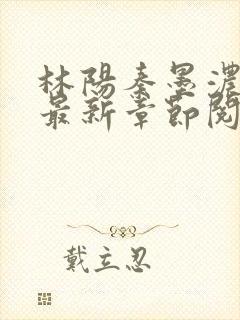 林陽秦墨濃
最新章節閱
戴立忍